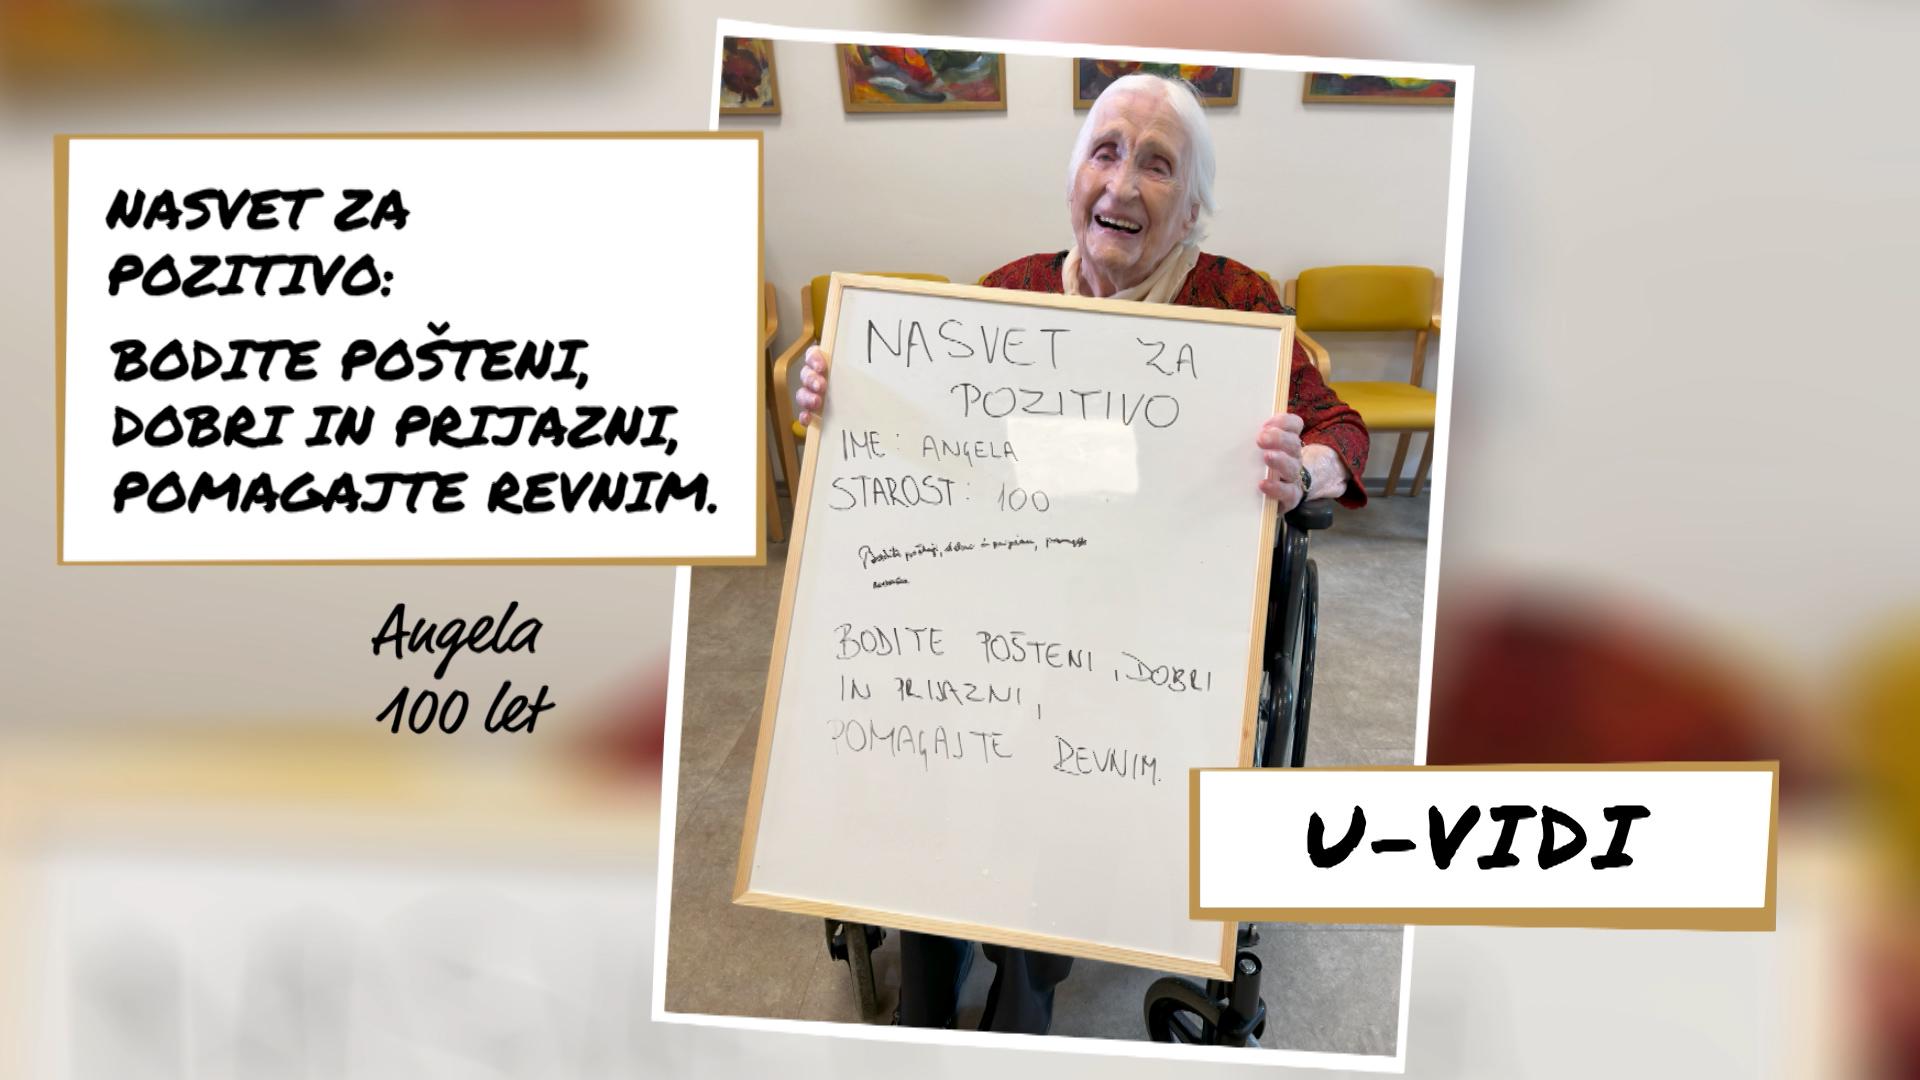 NASVET ZA
POZITIVO:
BODITE POŠTENI,
DOBRI IN PRIJAZNI,
POMAGAJTE REVNIM.
Angela
100 let
NASVET ZA
POZITIVO
IME: ANGELA
STAROST: 100
BODITE POŠTENI, DOBRI
IN PRIJAZNI,
POMAGAJTE REVNIM.
U-VIDI